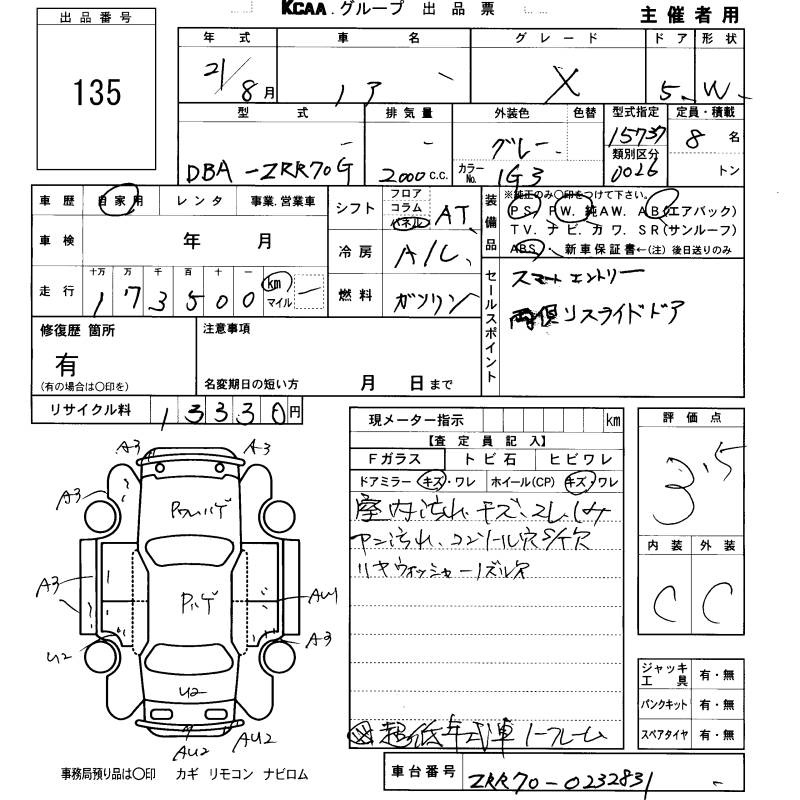 KCAA.グループ 出品票
主催者用
出品番号
135
年式 車名 グレード ドア 形状
21/8月 ノア X 5 W
型式 排気量 外装色 色替 型式指定 定員・積載
DBA-ZRR70G 2000c.c. グレー 15737 8名
カラーNo. 1G3 類別区分 0026 トン
車歴 自家用 レンタ 事業.営業車
車検 年 月
走行 十万 万 千 百 十 一
173500 km マイル
シフト フロア コラム パネル AT
冷房 A/C
燃料 ガソリン
装備品 ※純正のみ○印をつけて下さい。
PS. PW. 純AW. AB(エアバッグ)
TV. ナビ. カワ. SR(サンルーフ)
ABS. ・新車保証書←(注)後日送りのみ
セールスポイント
スマートエントリー
両側Pスライドドア
修復歴 箇所
有
(有の場合は○印を)
注意事項
名変期日の短い方 月 日まで
リサイクル料 13330円
現メーター指示 km
【査定員記入】
Fガラス トビ石 ヒビワレ
ドアミラー キズ・ワレ ホイール(CP) キズ・ワレ
室内汚れ.キズ.スレ.シミ
汚れ.コンソール穴
リヤウォッシャーノズル欠
超低年式車 ノークレーム
評価点
3.5
内装 外装
C C
ジャッキ工具 有・無
パンクキット 有・無
スペアタイヤ 有・無
A3 A3
A3
ハゲ
A3
ハゲ
AU1
U2
A3
U2
AU2 AU2
事務局預り品は○印 カギ リモコン ナビロム
車台番号 ZRR70-0232831